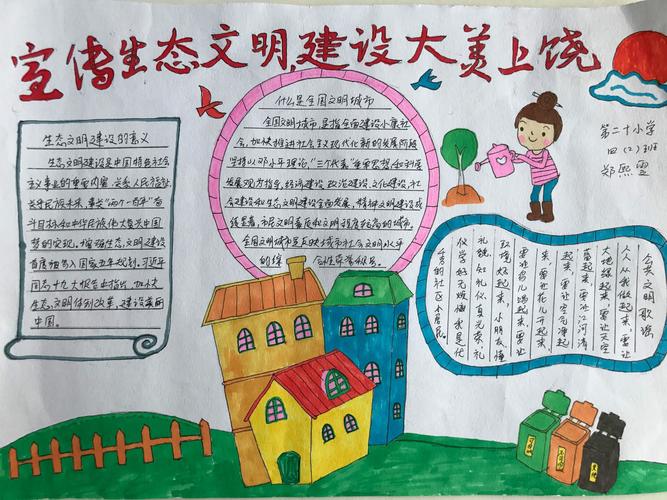 宣传生态文明建设大美上饶
第二十小学
四(2)班
郑熙雯
生态文明建设的意义
生态文明建设是中国特色社会
主义事业的重要内容,关系人民福祉,
关乎民族未来,事关“两个一百年”奋
斗目标和中华民族伟大复兴中国
梦的实现。增强生态文明建设
首度被写入国家五年规划。习近平
同志十九大报告也指出,加快
生态文明体制改革,建设美丽
中国。
什么是全国文明城市
全国文明城市,是指全面建设小康社
会,加快推进社会主义现代化新的发展阶段
坚持以邓小平理论,“三个代表”重要思想和科学
发展观为指导,经济建设 政治建设 文化建设,社
会建设和生态文明建设全面发展,精神文明建设成
绩显著,市民文明素质和文明程度较高的城市。
全国文明城市是反映城市社会文明水平
的综 合性荣誉称号。
公共文明歌谣
人人从我做起来,要让
大地绿起来,要让天空
蓝起来,要让江河清
起来,要让空气净起
来,要让花儿开起来,
要让鸟儿唱起来,要让
环境好起来,小朋友,懂
礼貌,知礼仪,有元素,礼
仪学好无烦恼,我是优
秀的社区小居民